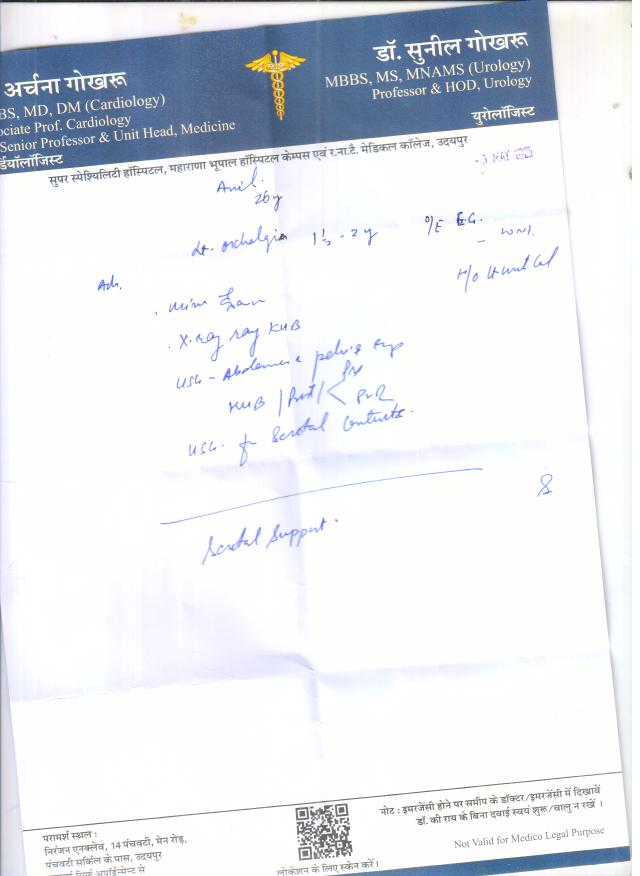 अर्चना गोखरू
BS, MD, DM (Cardiology)
ociate Prof. Cardiology
Senior Professor & Unit Head, Medicine
र्डियोलॉजिस्ट
डॉ. सुनील गोखरू
MBBS, MS, MNAMS (Urology)
Professor & HOD, Urology
यूरोलॉजिस्ट
सुपर स्पेशियलिटी हॉस्पिटल, महाराणा भूपाल हॉस्पिटल केम्पस एवं र.ना.टै. मेडिकल कॉलेज, उदयपुर
-3 MAY
Anil.
26y
Lt. orchalgia 1½ - 2y O/E E.G.
- WNL
H/O
Adv.
X-ray ray KUB
USG - Abdomen & pelvis
KUB / Prost /
PVR
USG - for Scrotal Contents.
Scrotal Support.
परामर्श स्थल :
निरंजन एनक्लेव, 14 पंचवटी, मेन रोड़,
पंचवटी सर्किल के पास, उदयपुर
लोकेशन के लिए स्केन करें।
नोट : इमरजेंसी होने पर समीप के डॉक्टर/इमरजेंसी में दिखावें
डॉ. की राय के बिना दवाई स्वयं शुरू/चालु न रखें ।
Not Valid for Medico Legal Purpose